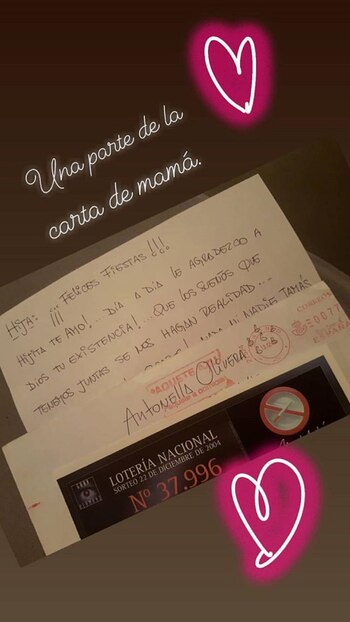 Una parte de la
carta de mamá.
HIJA: ¡¡¡ FELICES FIESTAS!!!
HIJITA TE AMO! DIA A DIA LE AGRADEZCO A
DIOS TU EXISTENCIA! ...QUE LOS SUEÑOS QUE
TENEMOS JUNTAS SE NOS HAGAN REALIDAD...
NADIE JAMÁS
CORREOS
ESPAÑA
PAQUETE
Antonella Olivera
LOTERÍA NACIONAL
SORTEO 22 DE DICIEMBRE DE 2004
Nº 37.996